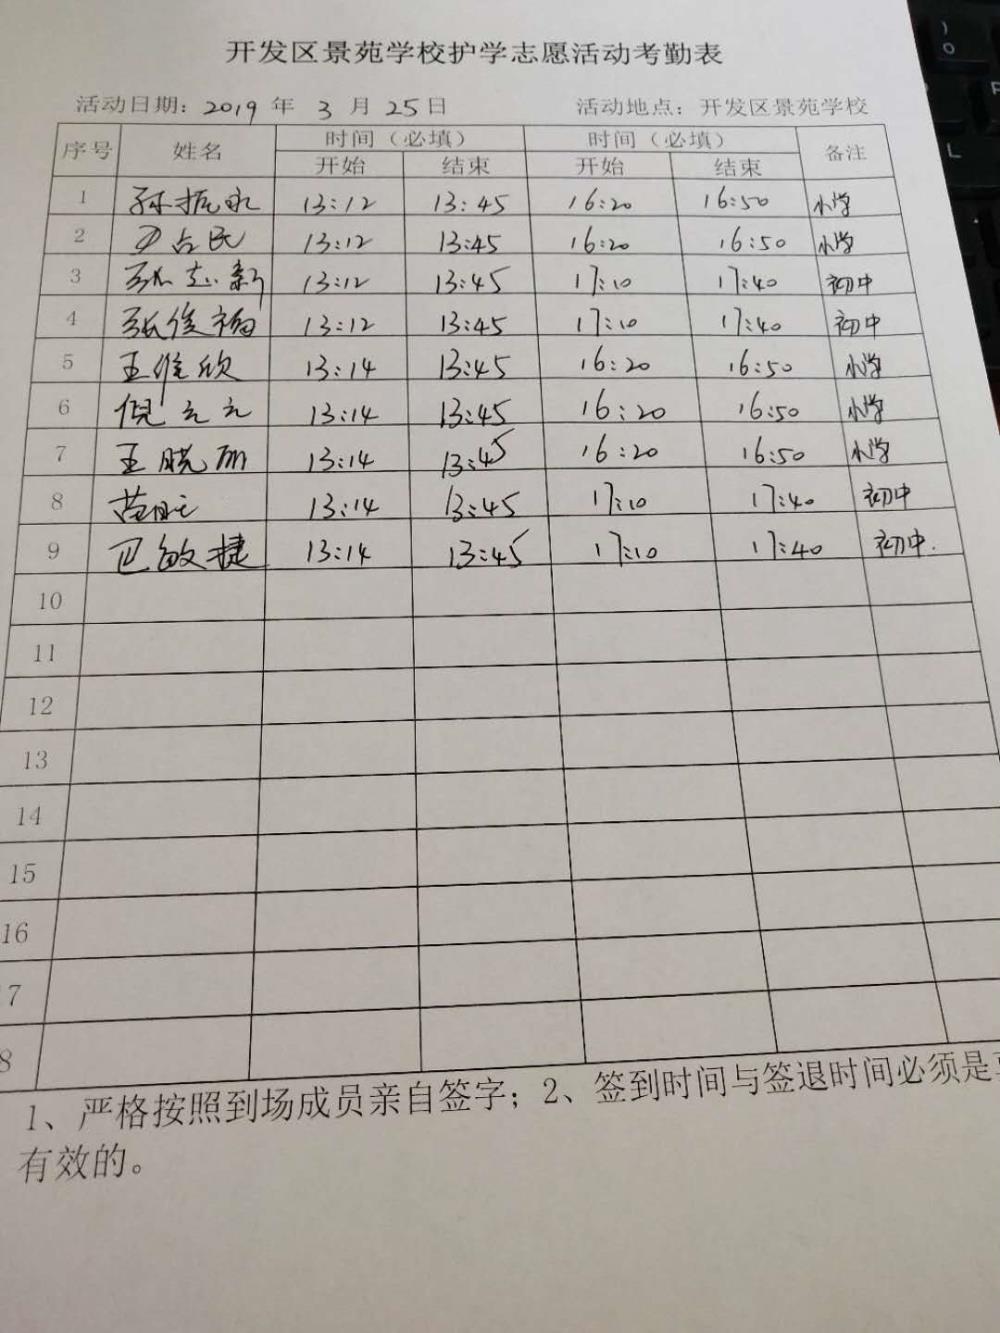 开发区景苑学校护学志愿活动考勤表
活动日期：2019 年 3 月 25 日 活动地点：开发区景苑学校
序号 姓名 时间（必填） 时间（必填） 备注
开始 结束 开始 结束
1 孙振永 13:12 13:45 16:20 16:50 小学
2 尹占民 13:12 13:45 16:20 16:50 小学
3 张志新 13:12 13:45 17:10 17:40 初中
4 张俊福 13:12 13:45 17:10 17:40 初中
5 王维欣 13:14 13:45 16:20 16:50 小学
6 倪元元 13:14 13:45 16:20 16:50 小学
7 王晓丽 13:14 13:45 16:20 16:50 小学
8 苗 13:14 13:45 17:10 17:40 初中
9 巴敏捷 13:14 13:45 17:10 17:40 初中.
10
11
12
13
14
15
16
7
8
1、严格按照到场成员亲自签字；2、签到时间与签退时间必须是
有效的。